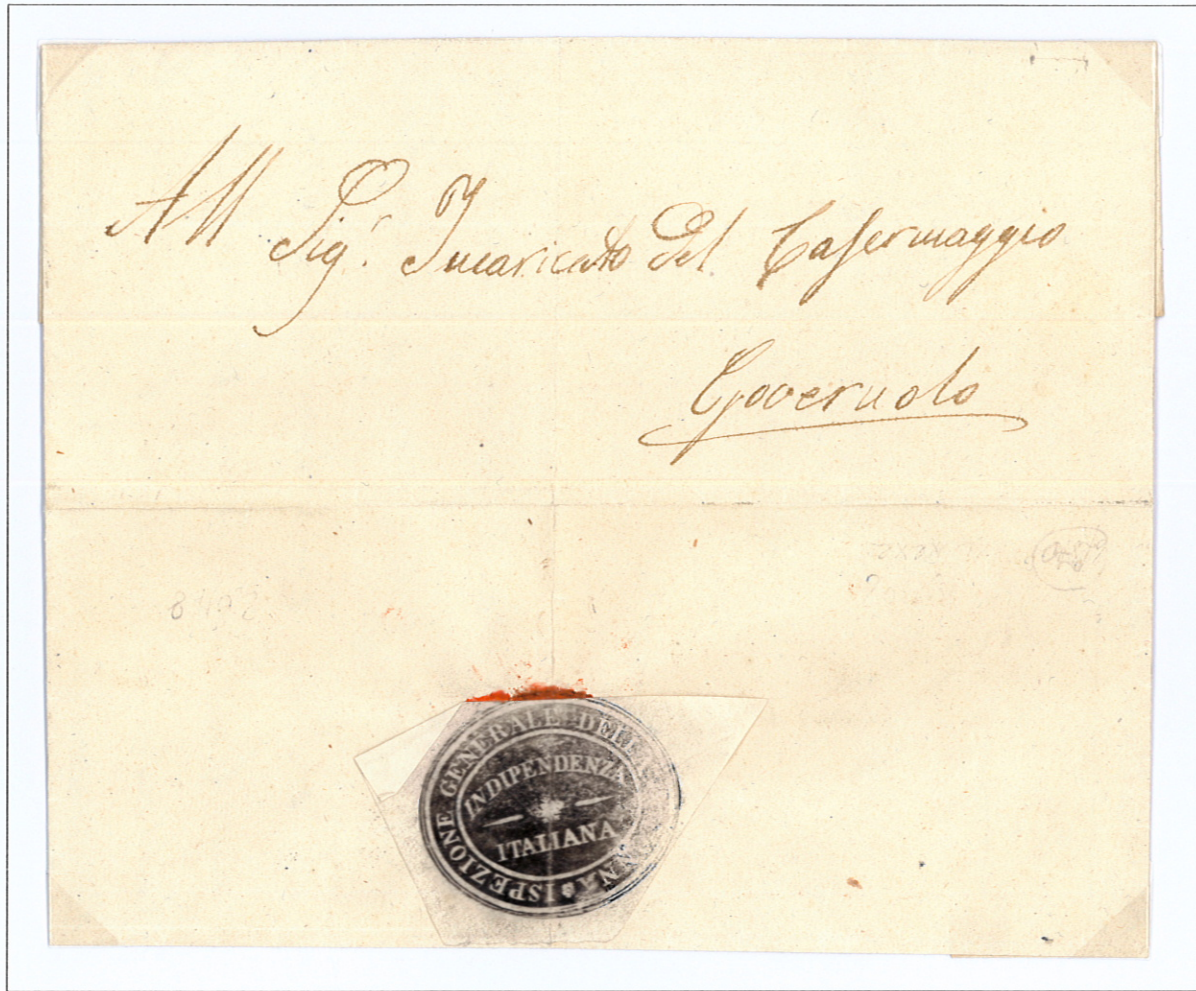 All Sig.r Incaricato del Casermaggio
Governolo
8402
ISPEZIONE GENERALE DELLA
INDIPENDENZA
ITALIANA